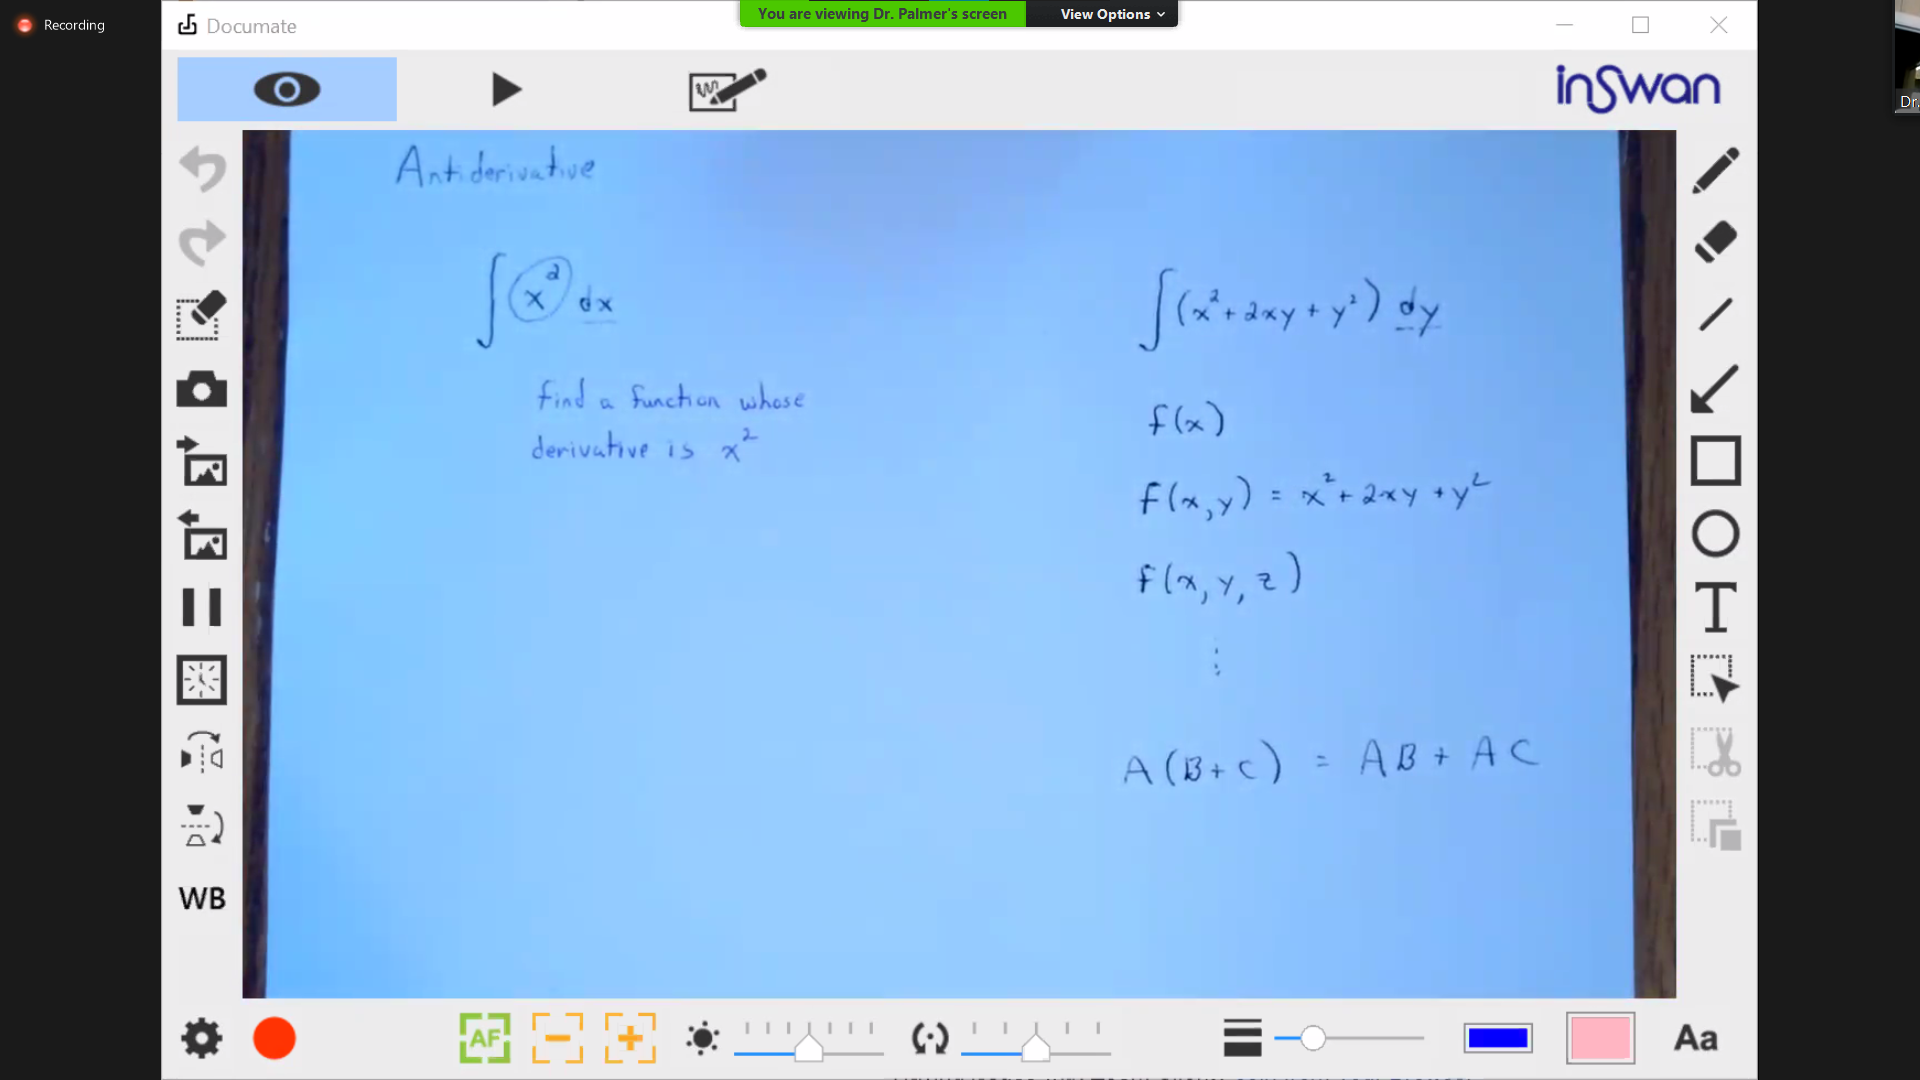 Recording
You are viewing Dr. Palmer's screen
View Options
Documate
Dr.
inswan
Antiderivative
∫ x² dx
find a function whose
derivative is x²
∫ (x² + 2xy + y²) dy
f(x)
f(x,y) = x² + 2xy + y²
f(x, y, z)
⋮
A(B+C) = AB + AC
T
WB
AF
Aa